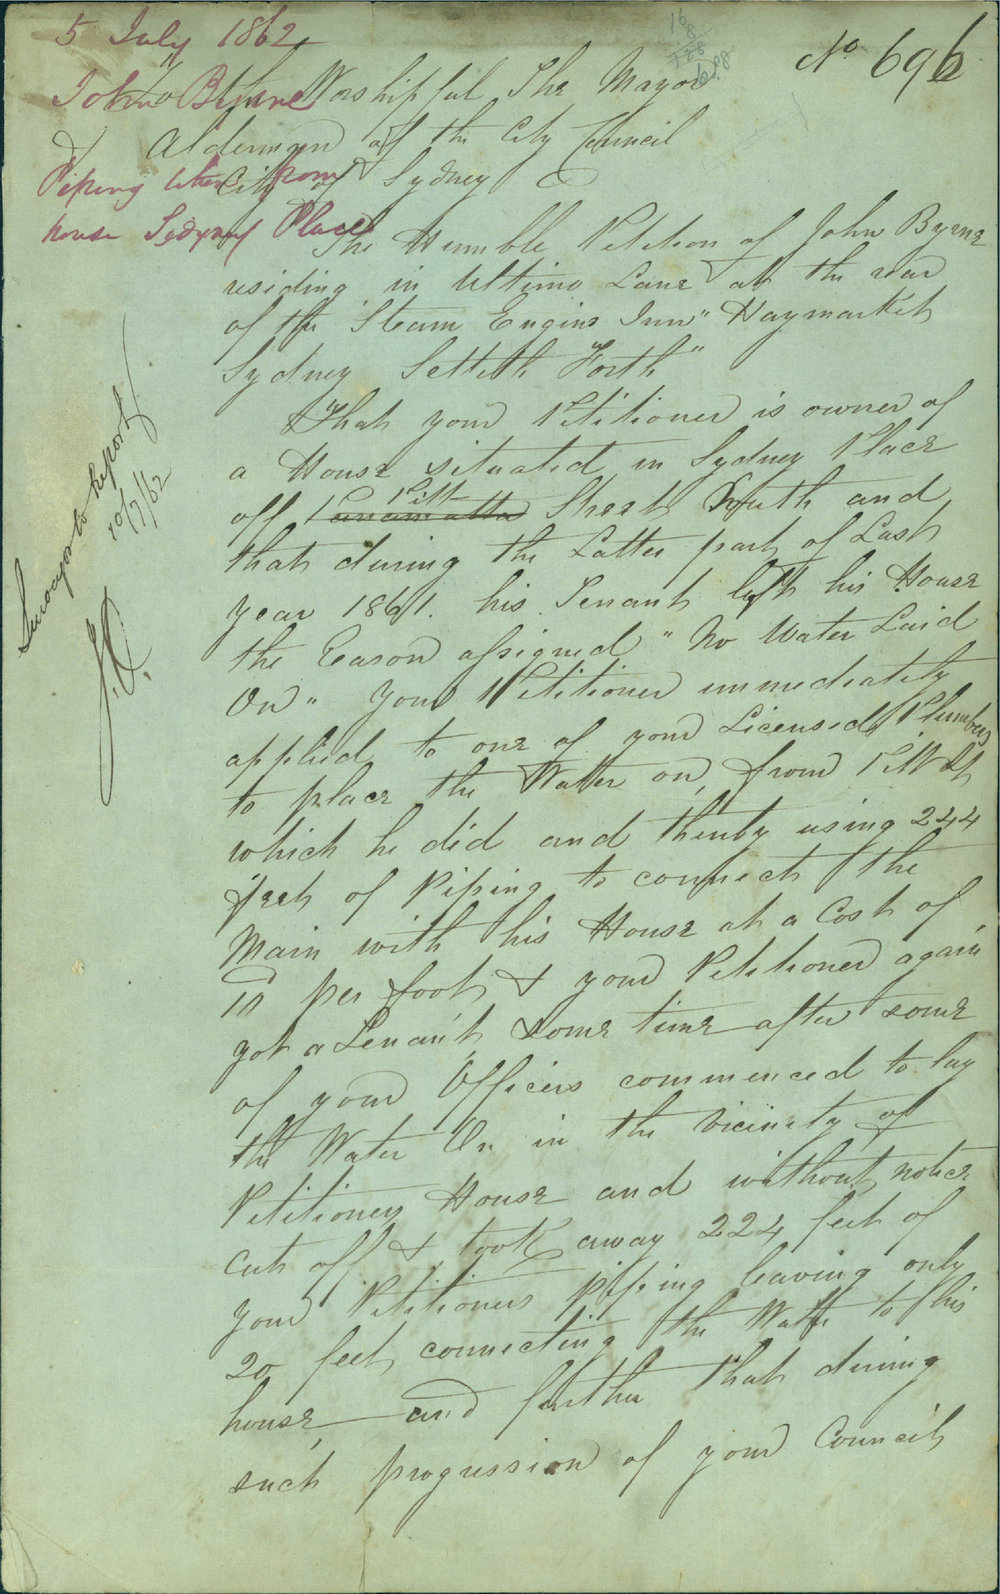 5 July 1862
No 696
John Byrne
Piping taken from
house Sydney Place
To the Worshipful The Mayor
& Aldermen of the City Council
City of Sydney
The Humble Petition of John Byrne
residing in Ultimo Lane at the rear
of the "Steam Engine Inn" Haymarket
Sydney Setteth Forth"
That your Petitioner is owner of
a House situated in Sydney Place
off Parramatta Pitt Street South and
that during the Latter part of Last
year 1861. his Tenant left his House
the Eason assigned "No Water Laid
On" Your Petitioner immediately
applied to one of your Licensed Plumbers
to place the Watter on, from Pitt St
which he did and thereby using 244
feet of Piping to connect the
Main with his House at a Cost of
per foot & your Petitioner again
got a Tenant some time after some
of your Officers commenced to lay
the Water On in the vicinity of
Petitioners House and without notice
cut off & took away 224 feet of
your Petitioners piping leaving only
20 feet connecting the Watter to his
house, and further that during
such progression of your Councils
Surveyor to report
10/7/62